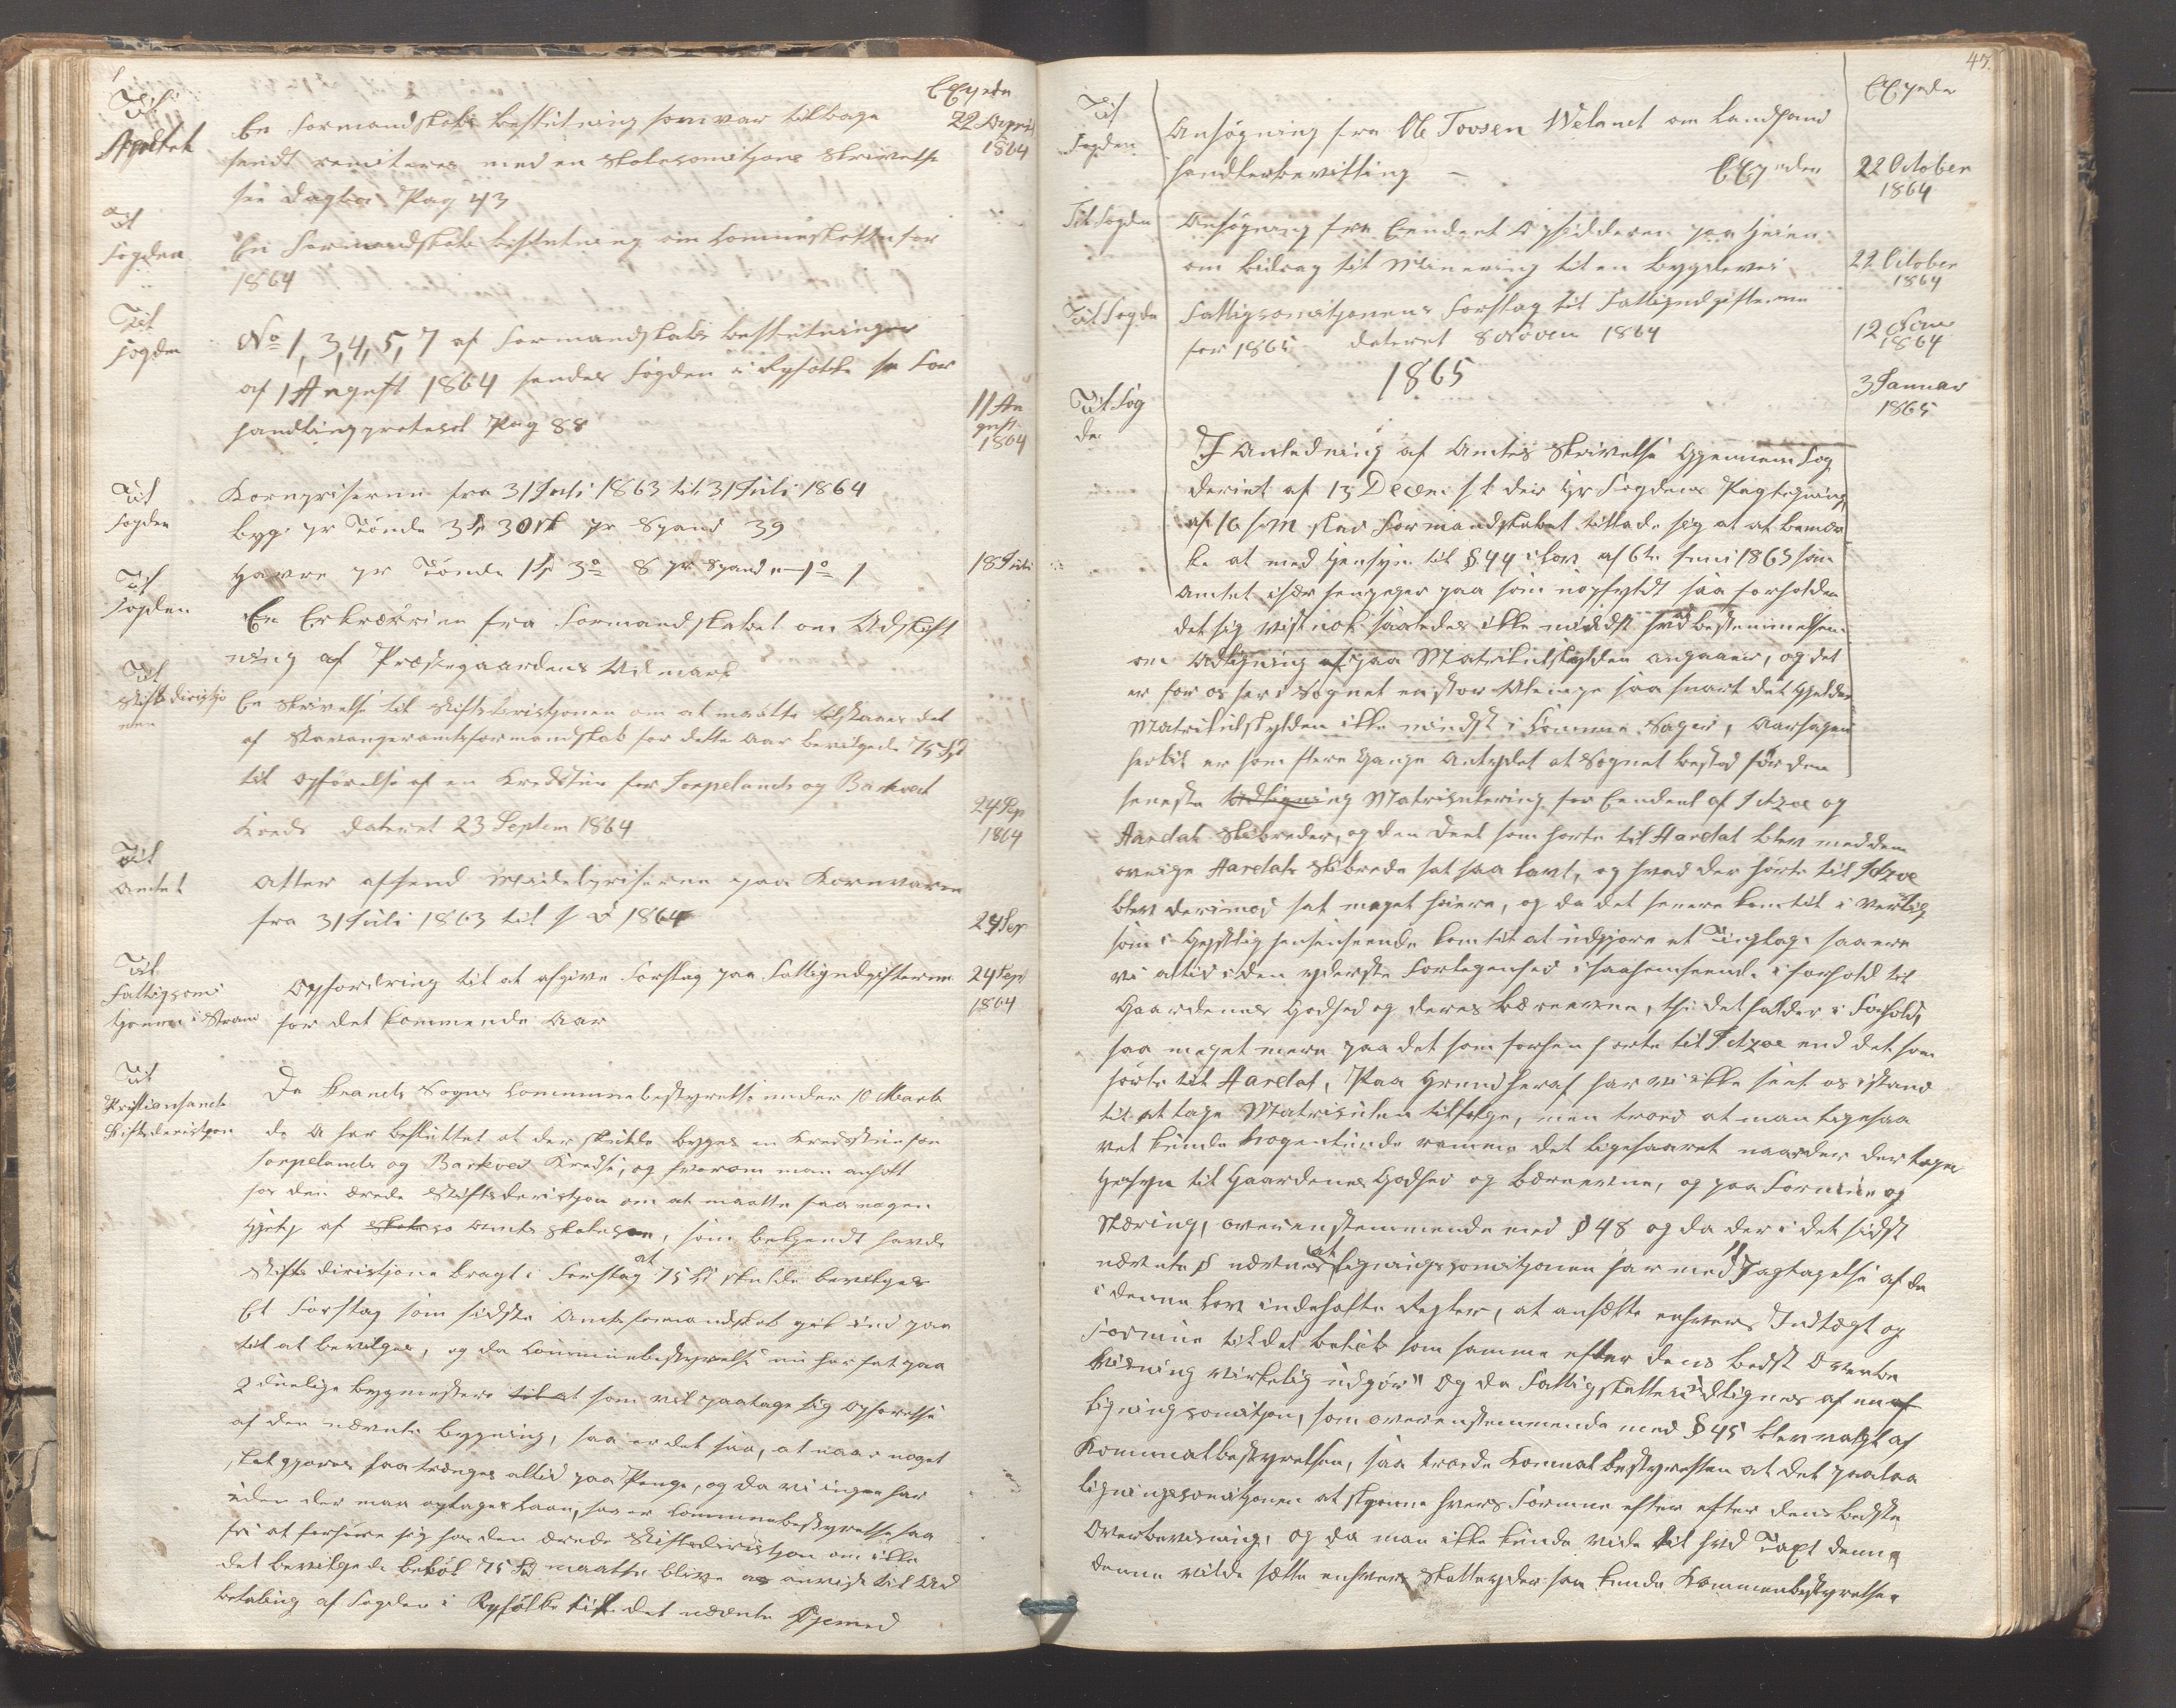 Expede
Til
Amtet
En Formandskabs beslutning som var tilbage
sendt remiteres med en Skolecomitions Skrivelse
see dagbo Pag 43
22 April
1864
Til
Fogden
En Formandskabs beslutning om Commuskatten for
1864
Til
Fogden
No 1, 3, 4, 5, 7 af Formandskabs beslutninger
af 1 August 1864 sendes Fogden i Ryfolke se For
handlingsprotocol Pag 88
11 Au
gust
1864
Til
Fogden
Kornpriserne fra 31 Juli 1863 til 31 Juli 1864
byg pr Tønde 3 Sp 3 Ort pr Spand 39
Havre pr Tønde 1 Sp 3 8 pr Spand
18 Juli
Til
Fogden
En Erklæring fra Formandskabet om Udskift
ning af Præstegaardens Udmark
Til
Stifts diristjo
nen
En Skrivelse til Stiftsdiristjonen om at maatte tilstaaes det
af Stavangeramtsformandskab for dette Aar bevilgede 75 Spd
til Opførelse af en Kredsstue for Lerpelands og Barkved
Kreds dateret 23 Septem 1864
24 Sep
1864
Til
Amtet
Atter afsend Middelpriserne paa Kornvarer
fra 31 Juli 1863 til 1864
24 Sep
Til
Fattigcomi
tjonen i Strand
Opfordring til at afgive Forslag paa Fattigudgifterne
for det kommende Aar
24 Sep
1864
Til
Kristiansands
Stiftsdiristjon
Da Strands Sogns Communebestyrelse under 10 Marts
d. A har besluttet at der skulde byges en Kredsstue for
Lerpelands og Barkved Kredse, og hvorom man anholt
hos den ærede Stiftsdiristjon om at maatte faa nogen
Hjelp af Amts Skolecassen, som bekjendt havde
Stifts diristjonen bragt i Forslag at 75 Sp skulde bevilges
Et Forslag som sidste Amtsformandskab gik ind paa
til at bevilges, og da Communebestyrelse nu har fat paa
2 duelige bygmestere til at som vil paatage sig Opførelse
af den nævnte bygning, saa er det saa, at naar noget
skal gjøres saa trænges altid paa Penge, og da vi ingen har
uden der maa optages Laan, saa er Communebestyrelse saa
fri at forhøre sig hos den ærede Stiftsdiristjon om ikke
det bevilgede beløb 75 Spd maatte blive anvist til Ud
betaling af Fogden i Ryfolke til det nævnte Øjemed
47.
Expede
Til
Fogden
Ansøgning fra Ole Tovsen Weland om Landhand
handlerbevilling
Expeder
22 October
1864
Til Fogden
Ansøgning fra Eendeel Opsiddere paa Heien
om bidrag til Minering til en Bygdevei
22 October
1864
Til Fogde
Fattigcomitjonens Forslag til Fattigudgifterne
for 1865 dateret 8 Noven 1864
12
1864
1865
Til Fog
de
3 Januar
1865
I Anledning af Amtes Skrivelse Gjennem Fog
deriet af 13 Decem s k den Hr Fogdens Paategning
af 16 s M skal Formandskabet tillade sig at at bemær
ke at med Hensyn til § 44 i Lov af 6te Juni 1863 som
Amtet især hengeger paa som uopfyldt saa forholder
det sig vist nok saaledes ikke mindst hvad bestemmelsen
om Udligning af paa Matrikulskylden angaaer, og det
er for os her i Sognet en stor Ulempe saa snart det Gjelder
Matrikulskylden ikke mindst i Comune Sager, Aarsagen
hertil er som flere Gange Antydet at Sognet bestod før den
seneste Udligning Matriculering for Eendeel af Idzøe og
Aardals Skibreder, og den Deel som hørte til Aardal blev med dem
øvrige Aardals Skibrede sat saa lavt, og hvad der hørte til Idzøe
blev derimod sat meget høiere, og da det senere kom til i Verdslig
som i Gejstlig henseende kom til at udgjøre et Tinglag saa ere
vi altid i den yderste Forlegenhed i saahenseende i forhold til
Gaardenes Godhed og deres bæreevne, thi det falder i Forhold,
saa meget mere paa det som forhen hørte til Idzøe end det som
hørte til Aardal, Paa Grund heraf har vi ikke seet os istand
til at tage Matriculen tilfølge, men troed at man ligesaa
vel kunde nogenlunde ramme det ligesaavel naar der tages
Hensyn til Gaardenes Godhed og bæreevne, og paa Formue og
Næring, overenstemmende med § 48 og da der i det sidst
nævnte § nævnes at ligningscomitjonen har med "Iagtagelse af de
i denne Lov indeholdte Regler, at ansætte enhvers Indtægt og
Formue til det beløb som samme efter dens bedst Overbe
viisning virkelig udgjør" Og da Fattigskatten udlignes af en af
ligningscomitjon, som overenstemmende med § 45 blev valgt af
Kommunalbestyrelsen, saa troede Komunalbestyrelsen at det paalaa
ligningscomitjonen at skjønne hvers Formue efter efter dens bedste
Overbeviisning, og da man ikke kunde vide til hvad Taxt denne
denne vilde sætte enhver Skatteyder saa kunde Kommunebestyrelsen